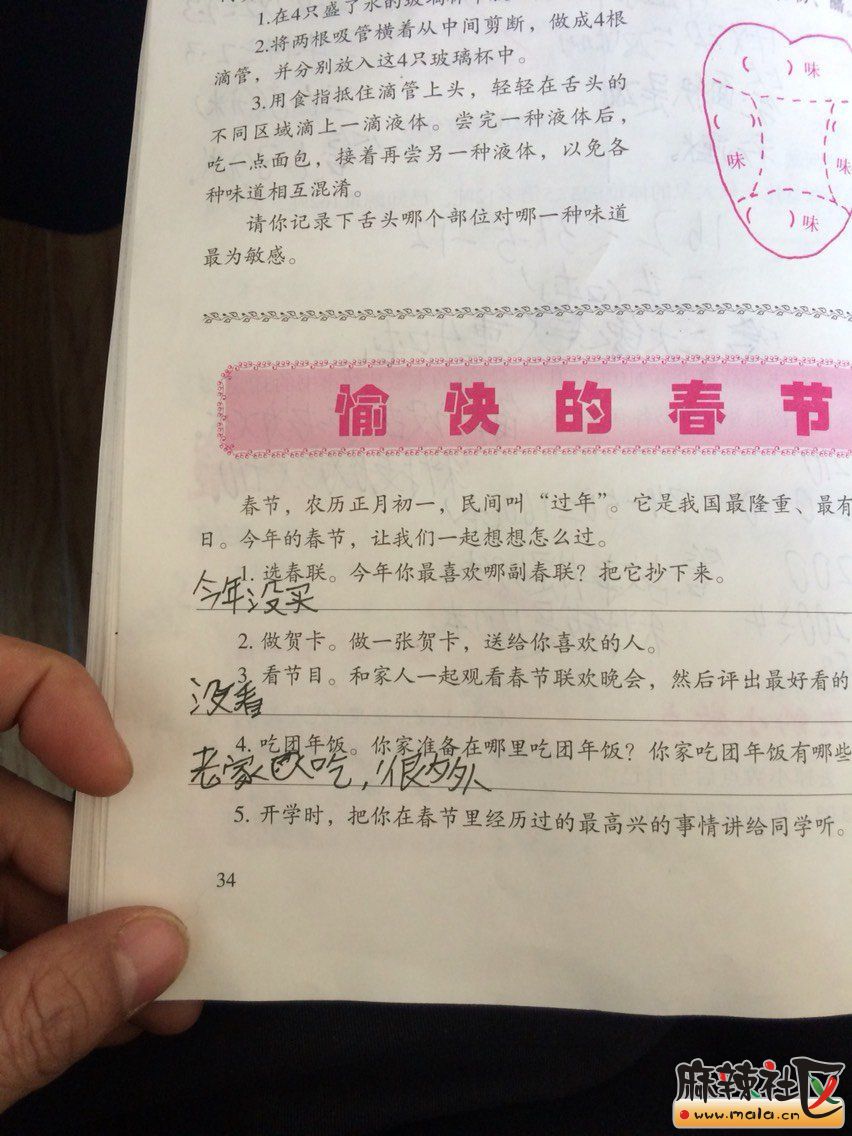 1.在4只盛了水的玻璃杯中
2.将两根吸管横着从中间剪断，做成4根
滴管，并分别放入这4只玻璃杯中。
3.用食指抵住滴管上头，轻轻在舌头的
不同区域滴上一滴液体。尝完一种液体后，
吃一点面包，接着再尝另一种液体，以免各
种味道相互混淆。
请你记录下舌头哪个部位对哪一种味道
最为敏感。
（ ）味
（ ）
味
（
味
（ ）味
愉快的春节
春节，农历正月初一，民间叫“过年”。它是我国最隆重、最有
日。今年的春节，让我们一起想想怎么过。
1. 选春联。今年你最喜欢哪副春联？把它抄下来。
今年没买
2. 做贺卡。做一张贺卡，送给你喜欢的人。
3. 看节目。和家人一起观看春节联欢晚会，然后评出最好看的
没看
4. 吃团年饭。你家准备在哪里吃团年饭？你家吃团年饭有哪些
老家 吃，很多人
5. 开学时，把你在春节里经历过的最高兴的事情讲给同学听。
34
麻辣社区
www.mala.cn